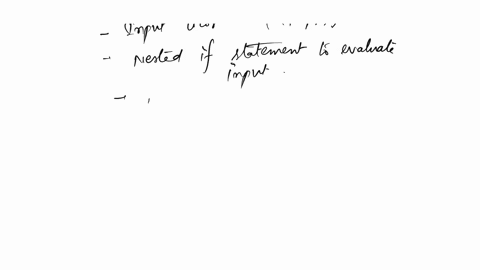 - Input
- Nested if statement to evaluate
input.
-